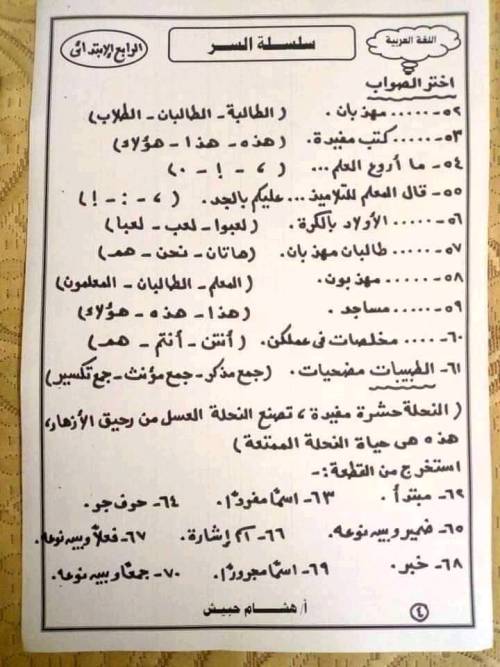 اللغة العربية
سلسلة السر
الرابع الابتدائى
اختر الصواب
٥٢- ...... مهذبان. (الطالبة - الطالبان - الطلاب)
٥٣- ...... كتب مفيدة. (هذه - هذا - هؤلاء)
٥٤- ما أروع العلم ... ( ، - ! - . )
٥٥- قال المعلم للتلاميذ ... عليكم بالجد. ( ، - : - ! )
٥٦- ..... الأولاد بالكرة. (لعبوا - لعب - لعبا)
٥٧- ...... طالبان مهذبان. (هاتان - نحن - هم)
٥٨- ...... مهذبون. (المعلم - الطالبان - المعلمون)
٥٩- ...... مساجد. (هذا - هذه - هؤلاء)
٦٠- .... مخلصات فى عملكن. (أنتن - أنتم - هم)
٦١- الطبيبات مضحيات. (جمع مذكر - جمع مؤنث - جمع تكسير)
(النحلة حشرة مفيدة، تصنع النحلة العسل من رحيق الأزهار،
هذه هى حياة النحلة الممتعة)
استخرج من القطعة:-
٦٢- مبتدأ. ٦٣- اسمًا مفردًا. ٦٤- حرف جر.
٦٥- ضمير وبين نوعه. ٦٦- اسم إشارة. ٦٧- فعلاً وبين نوعه.
٦٨- خبر. ٦٩- اسمًا مجرورًا. ٧٠- جمعًا وبين نوعه.
أ/ هشام حبيش
٤